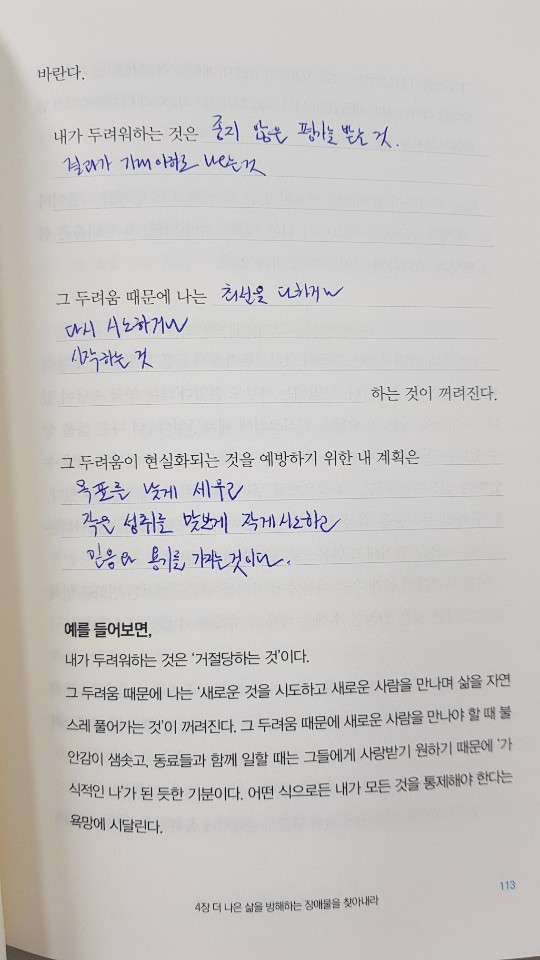 바란다.
내가 두려워하는 것은 좋지 않은 평가를 받는 것.
결과가 기대 이하로 나오는 것
그 두려움 때문에 나는 최선을 다하거나
다시 시도하거나
시작하는 것
하는 것이 꺼려진다.
그 두려움이 현실화되는 것을 예방하기 위한 내 계획은
목표를 낮게 세우고
작은 성취를 맛보게 작게 시도하고
믿음과 용기를 가지는 것이다.
예를 들어보면,
내가 두려워하는 것은 ‘거절당하는 것’이다.
그 두려움 때문에 나는 ‘새로운 것을 시도하고 새로운 사람을 만나며 삶을 자연
스레 풀어가는 것’이 꺼려진다. 그 두려움 때문에 새로운 사람을 만나야 할 때 불
안감이 샘솟고, 동료들과 함께 일할 때는 그들에게 사랑받기 원하기 때문에 ‘가
식적인 나’가 된 듯한 기분이다. 어떤 식으로든 내가 모든 것을 통제해야 한다는
욕망에 시달린다.
113
4장 더 나은 삶을 방해하는 장애물을 찾아내라